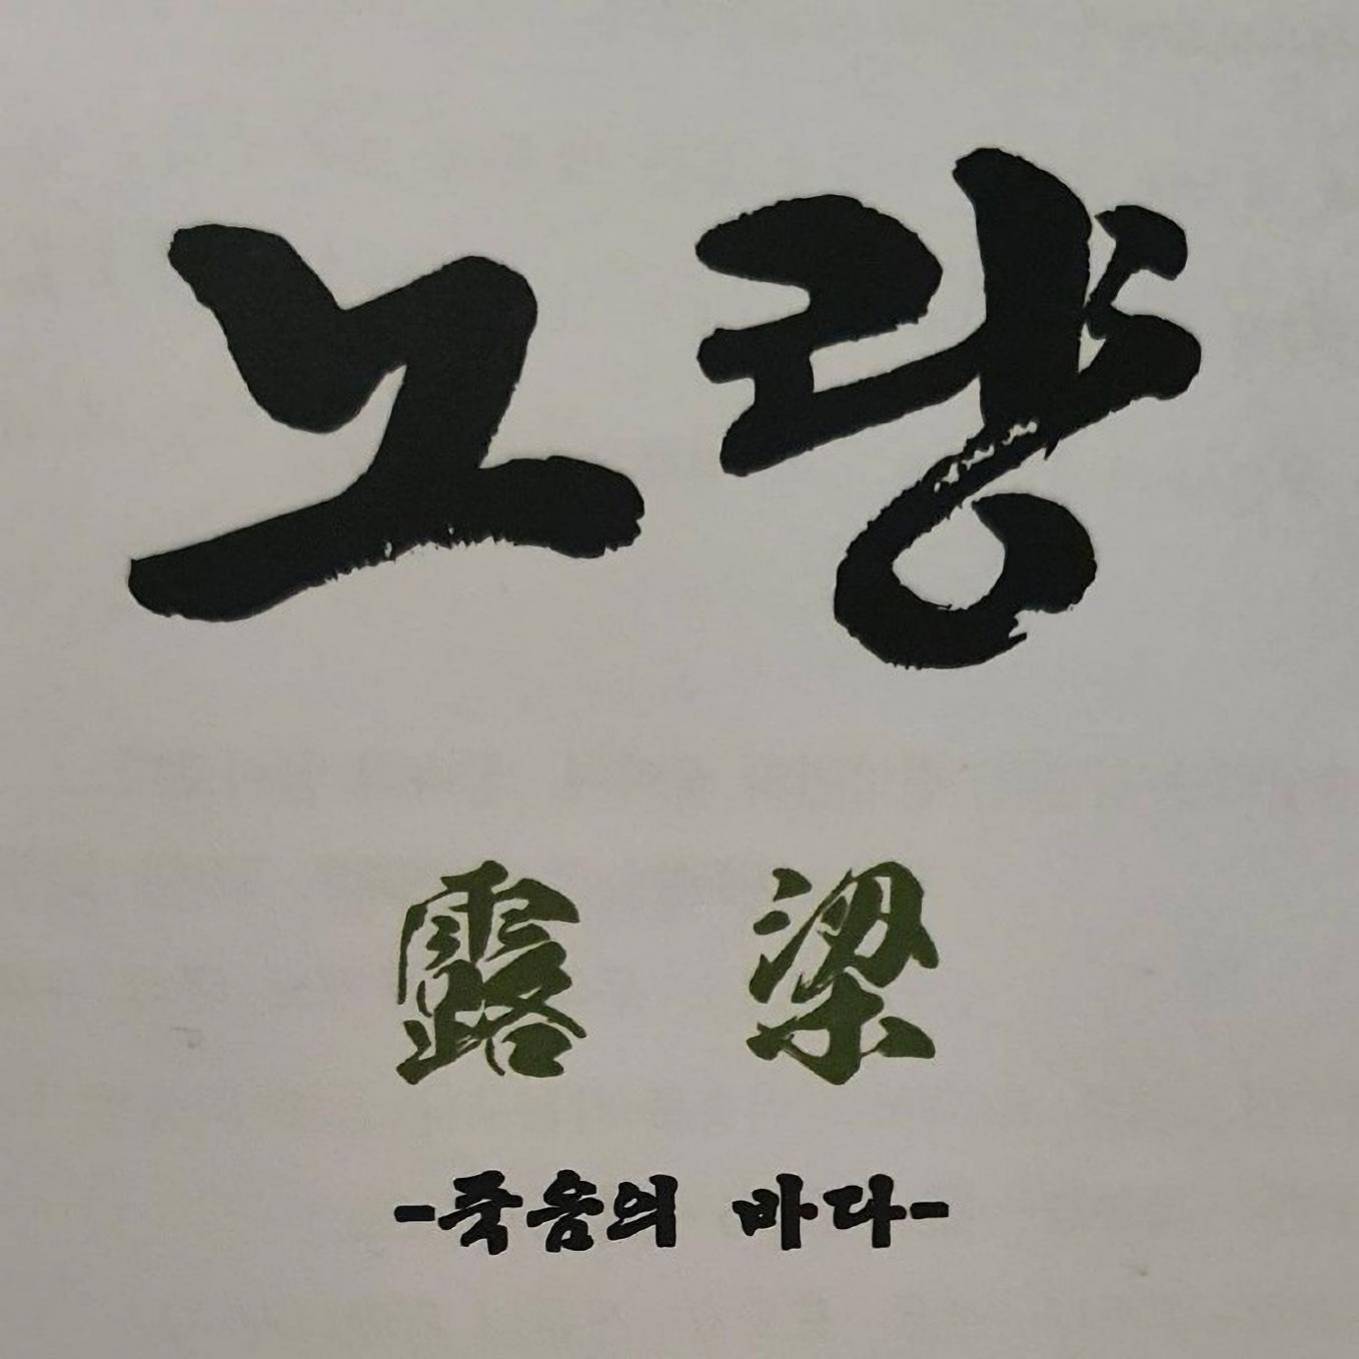 노량
露 梁
-죽음의 바다-